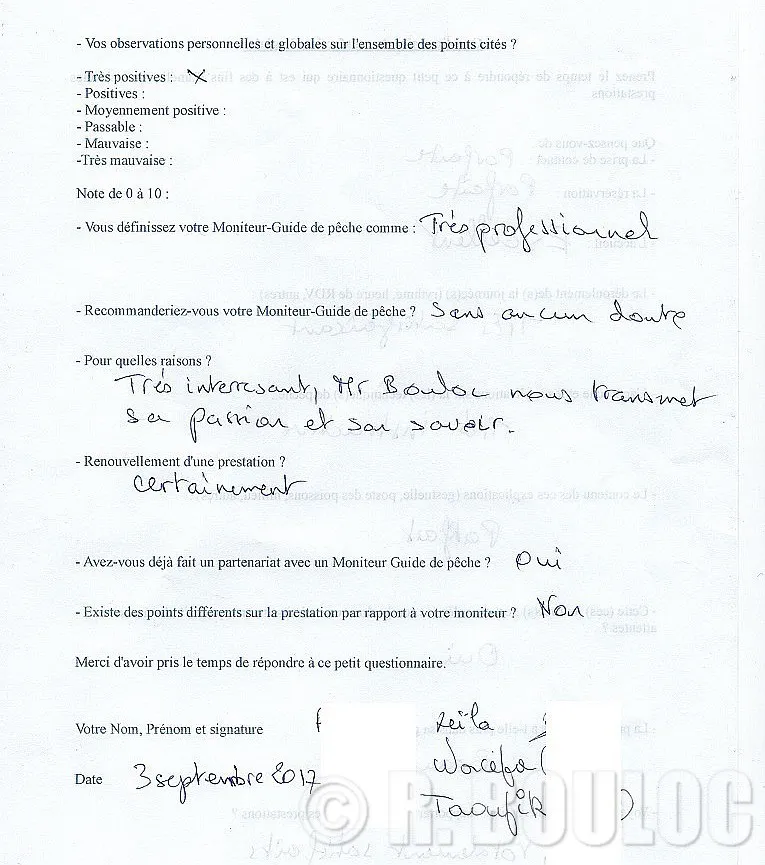 - Vos observations personnelles et globales sur l'ensemble des points cités ?
- Très positives : X
- Positives :
- Moyennement positive :
- Passable :
- Mauvaise :
-Très mauvaise :
Note de 0 à 10 :
- Vous définissez votre Moniteur-Guide de pêche comme : Très professionnel
- Recommanderiez-vous votre Moniteur-Guide de pêche ? Sans aucun doute
- Pour quelles raisons ?
Très interresant, Mr Bouloc nous transmet
sa passion et son savoir.
- Renouvellement d'une prestation ?
certainement
- Avez-vous déjà fait un partenariat avec un Moniteur Guide de pêche ? Oui
- Existe des points différents sur la prestation par rapport à votre moniteur ? Non
Merci d'avoir pris le temps de répondre à ce petit questionnaire.
Votre Nom, Prénom et signature
Date 3 septembre 2017
Taoufik
© R. BOULOC